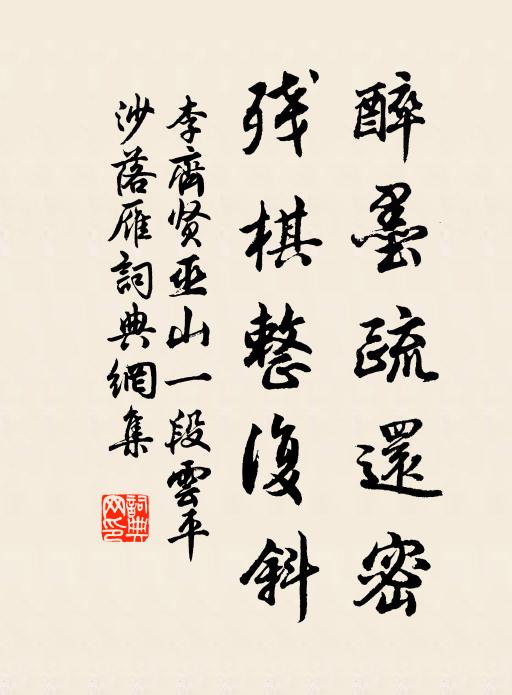 醉墨疏還密
残棋整復斜
李齊贤巫山一段雲平
沙落雁詞典網集
詞典
网印